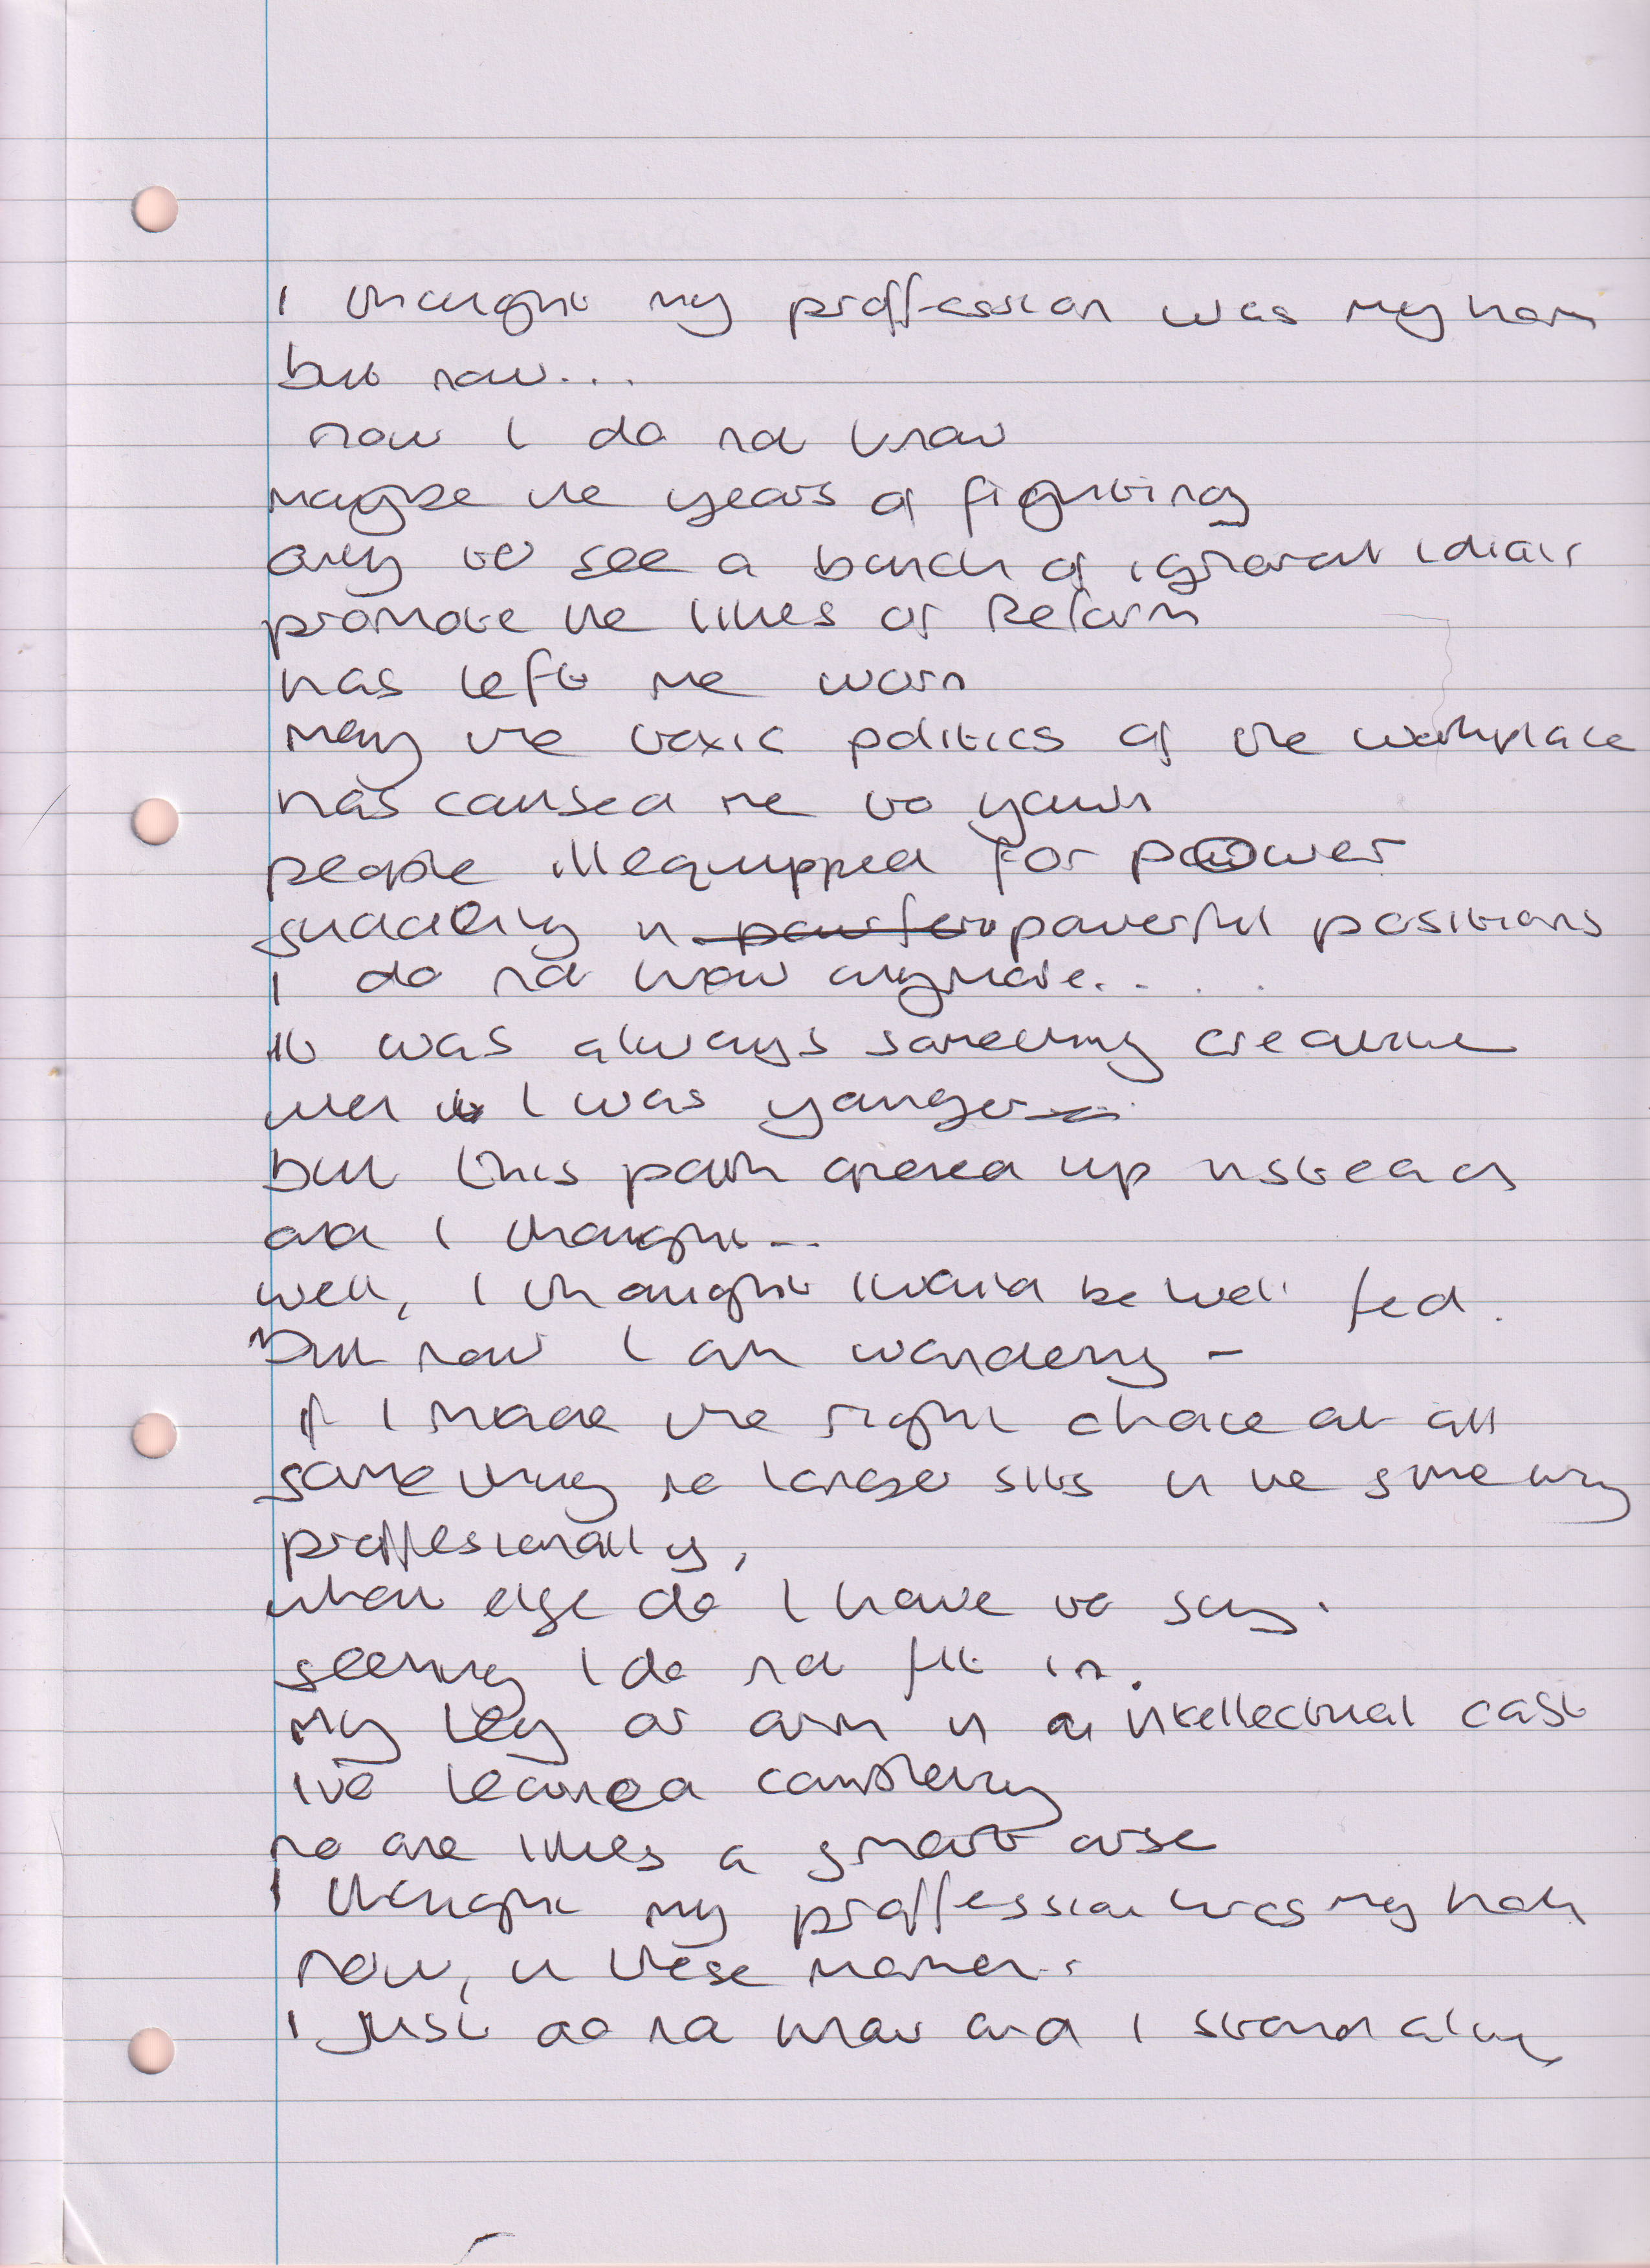 I thought my proffession was my home
but now...
now I do not know
maybe the years of fighting
only to see a bunch of ignorant idiots
promote the likes of Reform
has left me worn
the toxic politics of the workplace
has caused me to yawn
people illequipped for power
suddenly in powerful positions
I do not know anymore....
It was always something creative
when I was younger
but this path opened up instead
and I thought...
well, I thought I would be well fed.
But now I am wondering -
if I made the right choice at all
something no longer sits in the same way
proffesionally,
what else do I have to say.
seeing I do not fit in.
my leg or arm in a intellectual cast
Ive learned
no one likes a smart arse
I thought my proffession was my home
now, in these moments
I just do not know and I stand alone